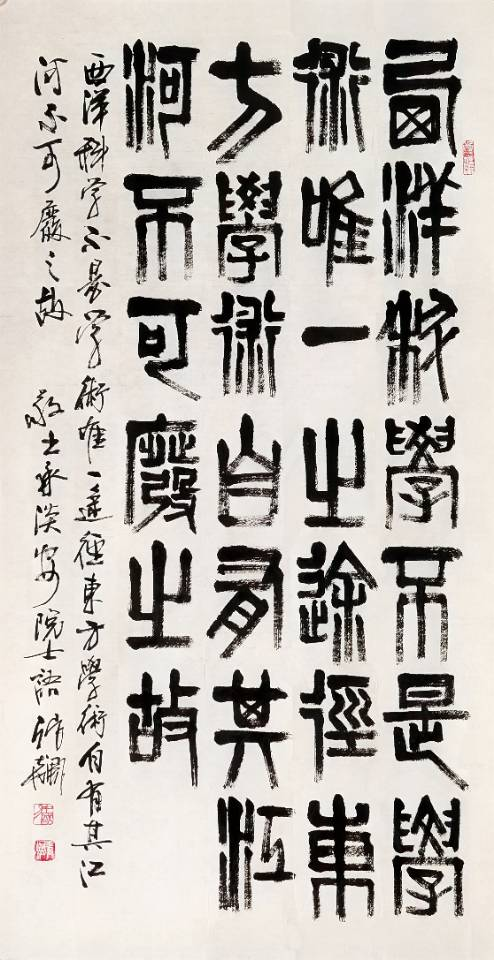 西洋科學不是學
術唯一之途徑東
方學術自有其江
河不可廢之故
西洋科学不是学術唯一途徑東方學術自有其江
河不可廢之故 敬书承淡安院士語